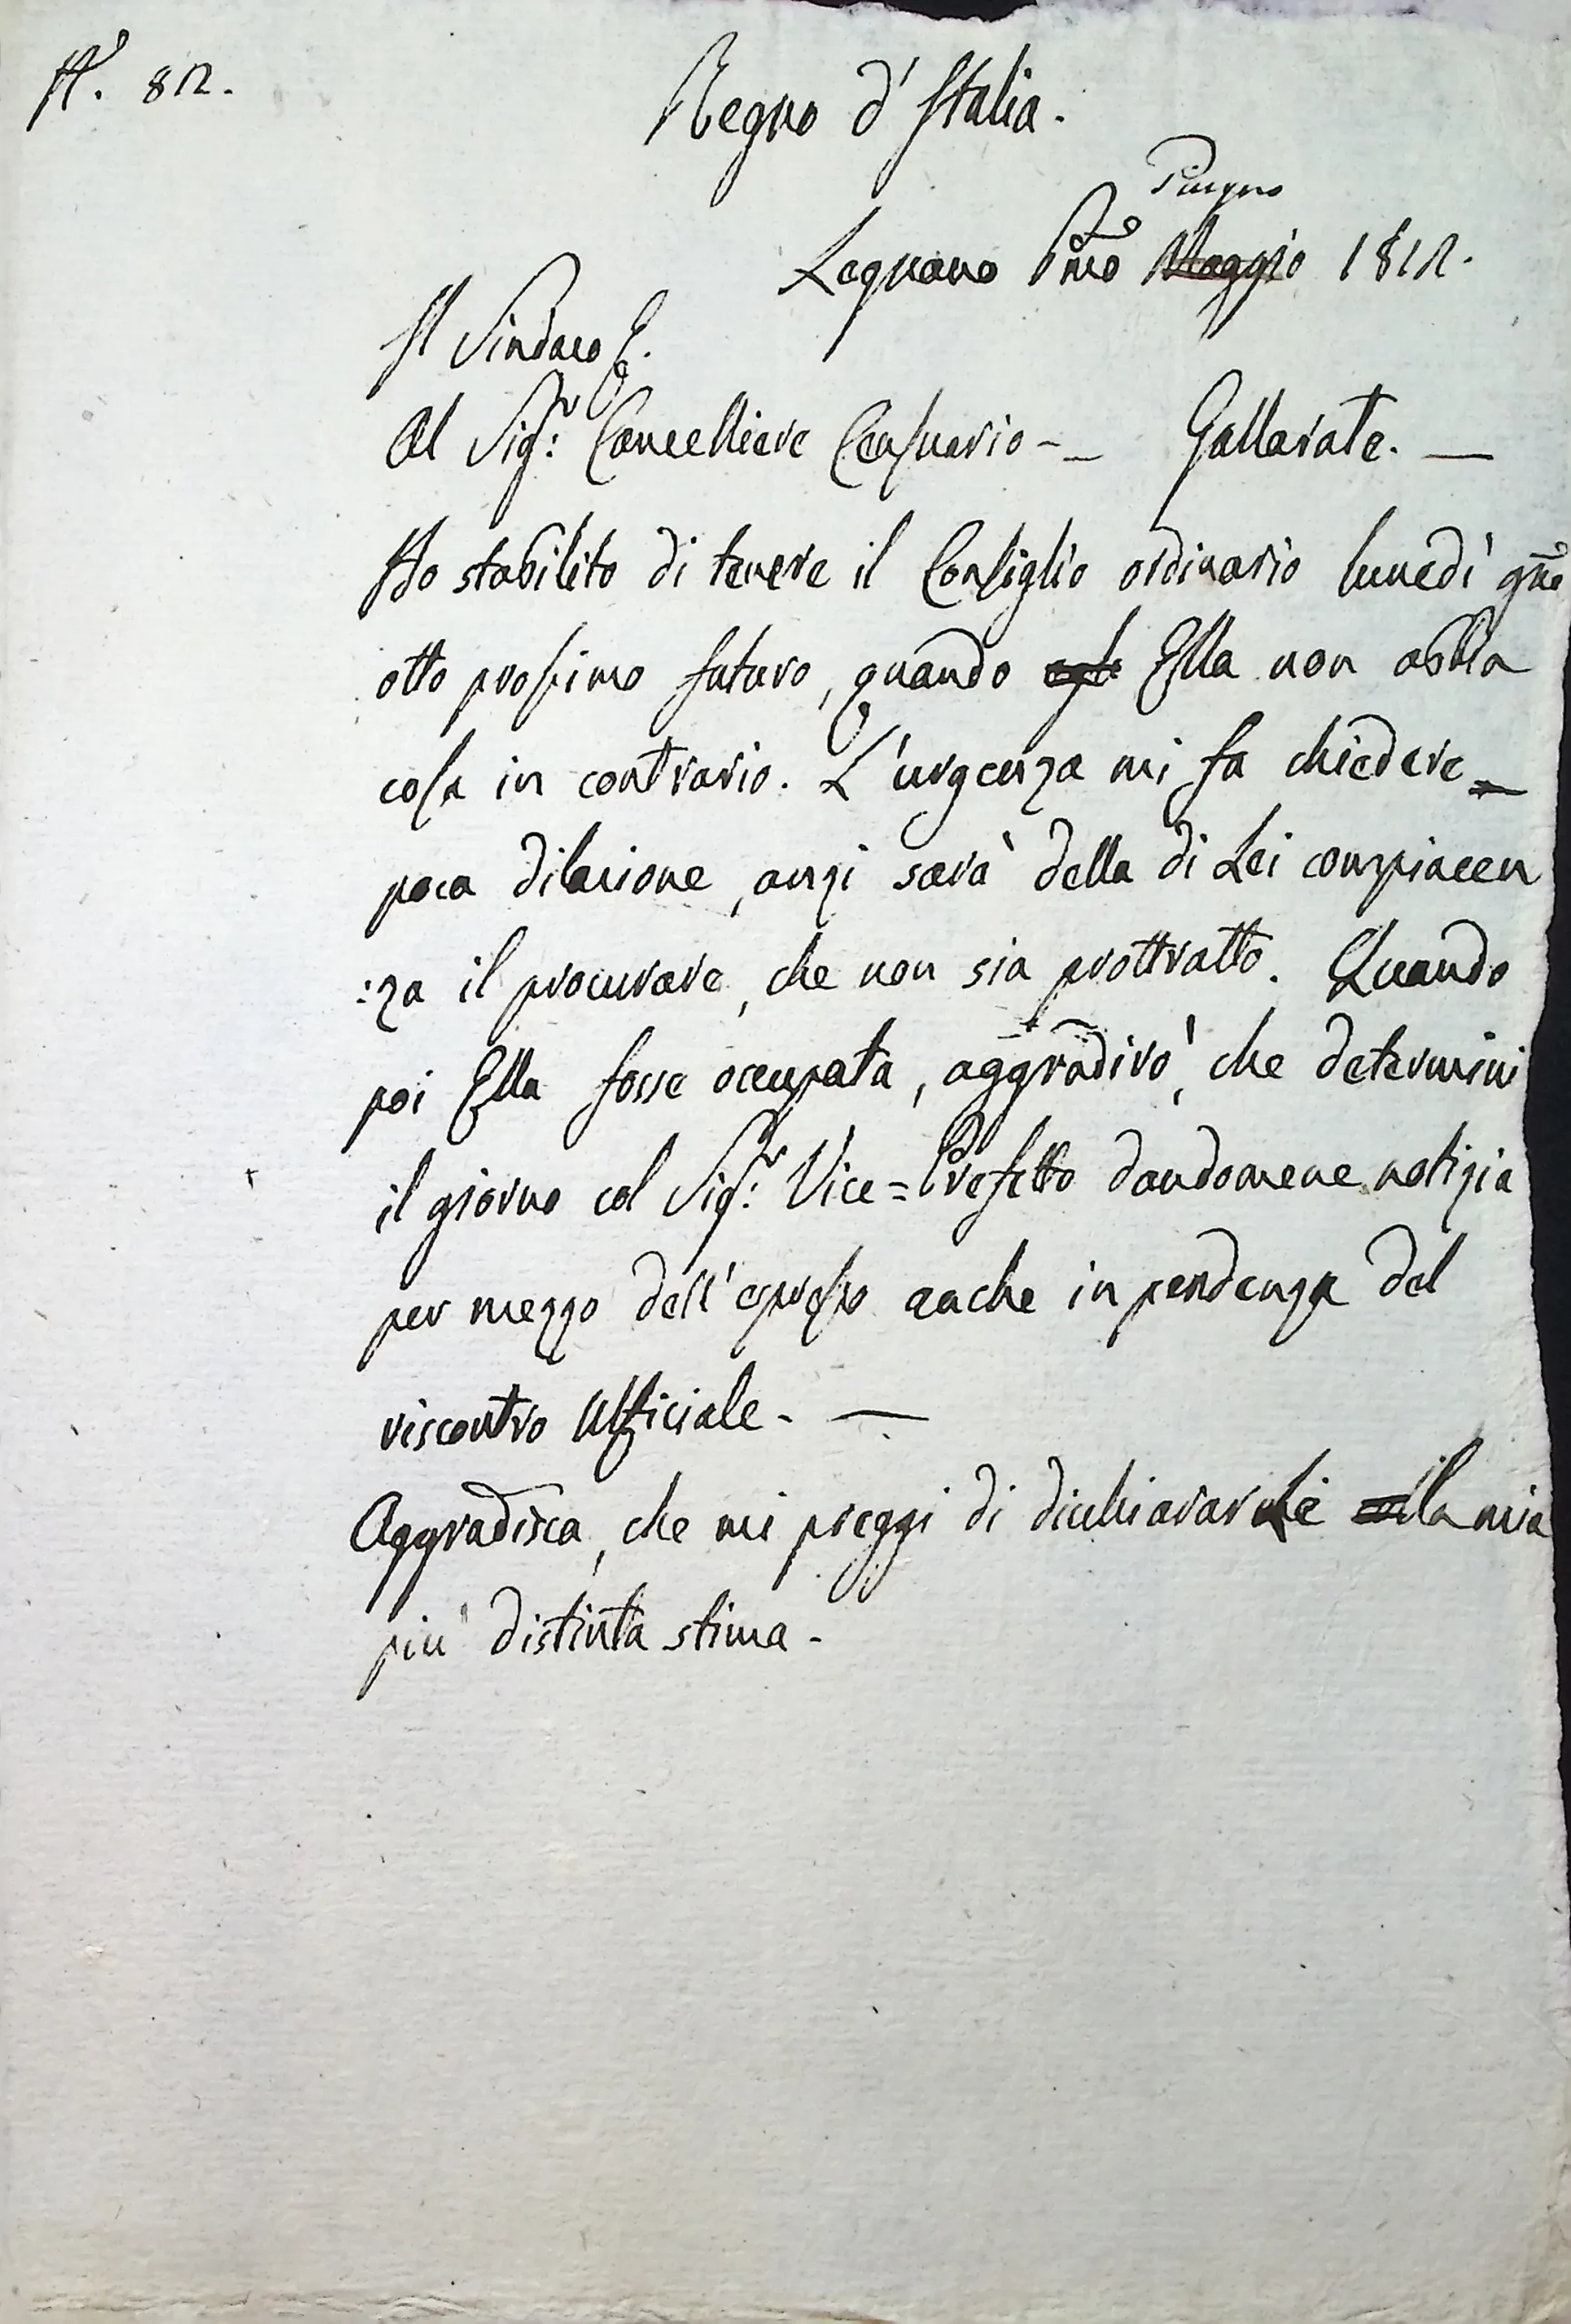 N.° 812.
Regno d'Italia.
Giugno
Legnano Pmo Maggio 1812.
Il Sindaco
Al Sig.r Cancelliere Censuario -- Gallarate. —
Ho stabilito di tenere il Consiglio ordinario lunedì gno
otto prossimo futuro, quando Ella non abbia
cosa in contrario. L'urgenza mi fa chiedere
poca dilazione, anzi sarà della di Lei compiacen
:za il procurare, che non sia prottratto. Quando
poi Ella fosse occupata, aggradirò, che determini
il giorno col Sig.r Vice=Prefetto dandomene notizia
per mezzo dell'espresso anche in pendenza del
riscontro Ufficiale. —
Aggradisca, che mi preggi di dichiararLe la mia
più distinta stima.